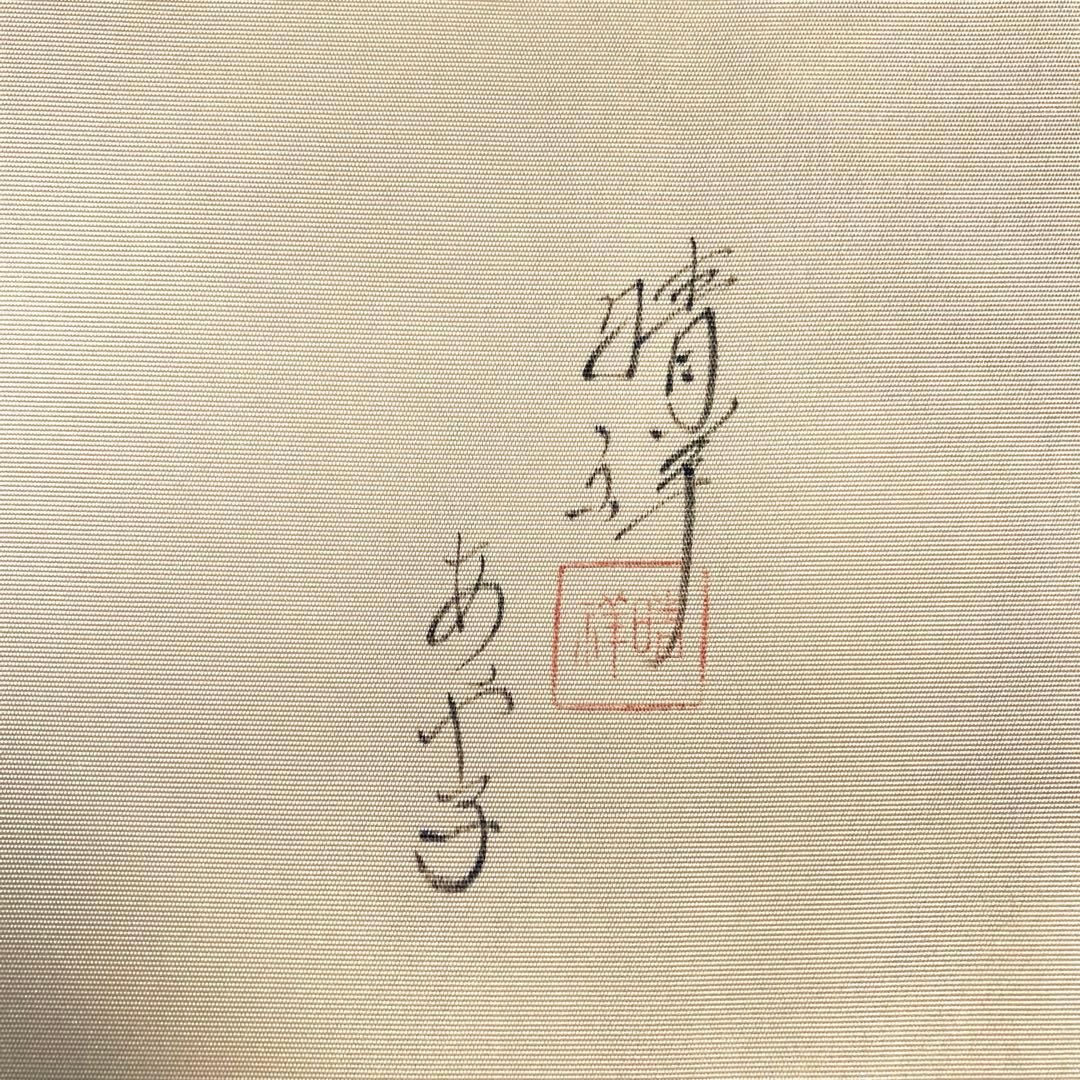 晴祥
あや子
晴祥